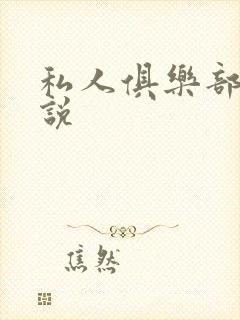 私人俱樂部
說
焦然